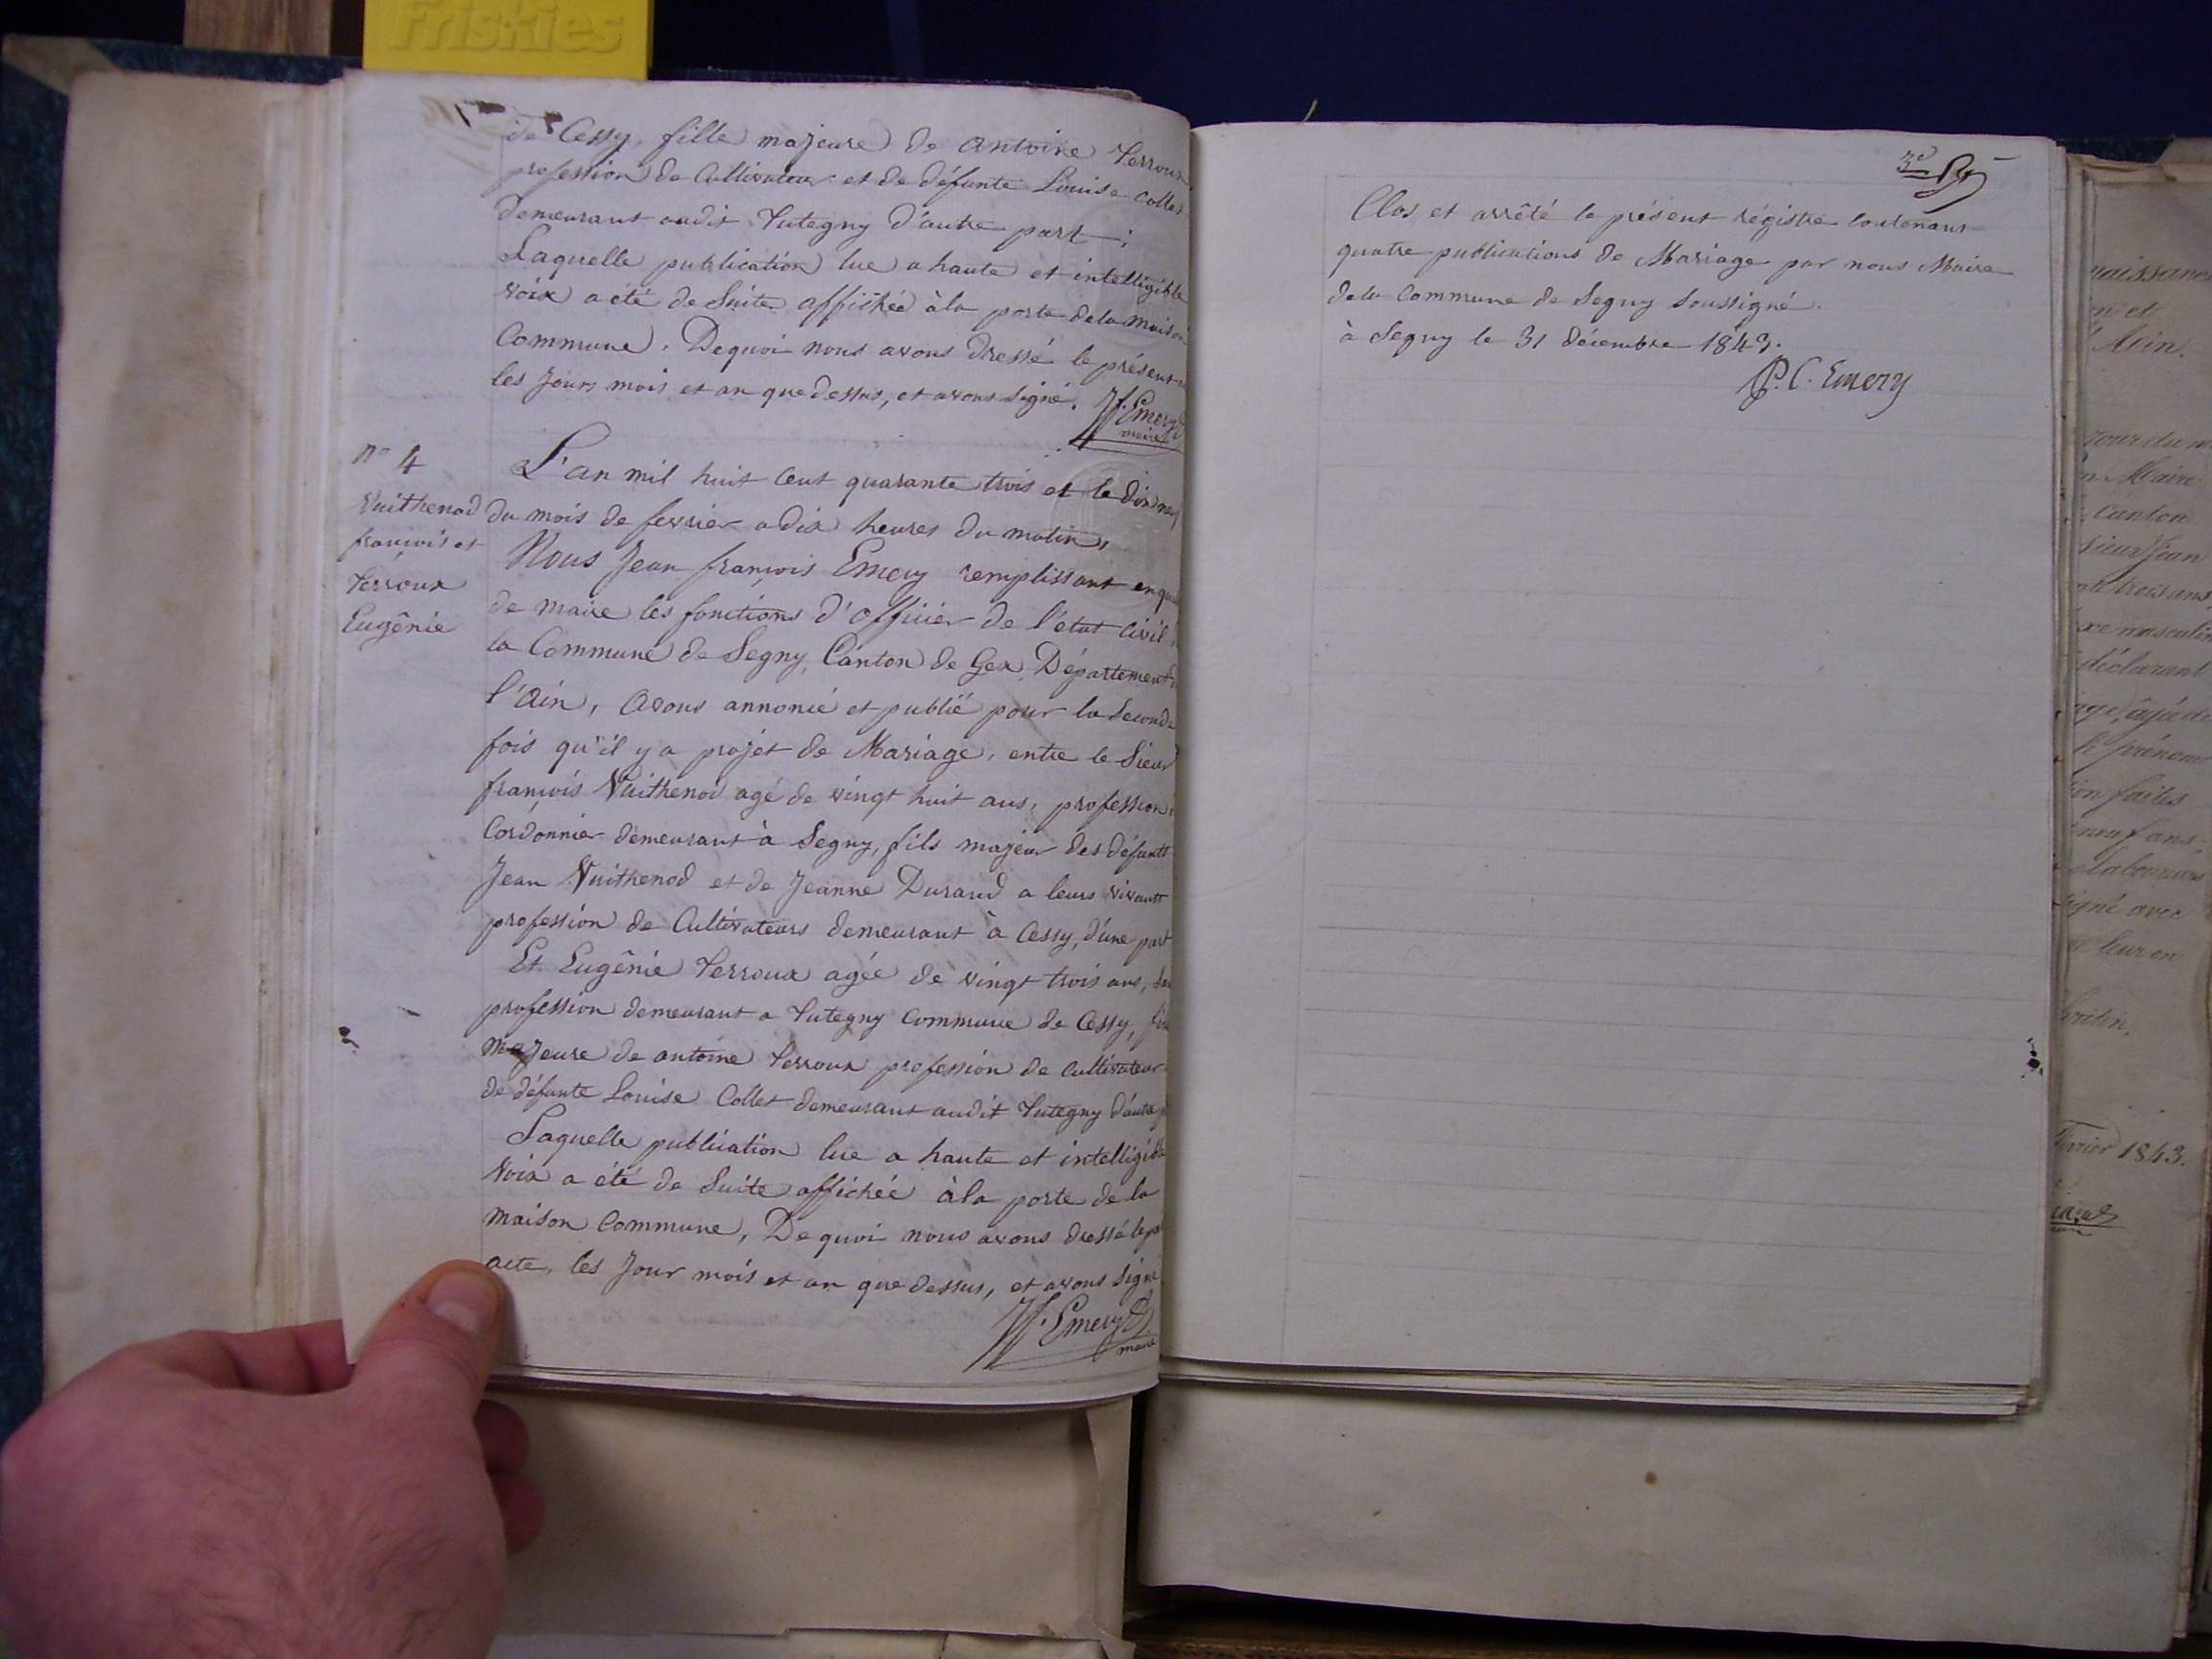 Friskies
de Cessy, fille majeure de antoine Perroux
profession de Cultivateur et de défunte Louise Collet
demeurant audit Tutegny d'autre part ;
Laquelle publication lue a haute et intelligible
voix a été de Suite affichée à la porte de la maison
Commune. De quoi nous avons Dressé le présent
les Jours mois et an que dessus, et avons signé. Jf. Emery
maire
n° 4
Vuithenod
françois et
Perroux
Eugênie
L'an mil huit Cent quarante trois et le Dix neuf
Du mois de fevrier a dix heures du matin,
Nous Jean françois Emery remplissant en
de maire les fonctions d'officier de l'état Civil
la Commune de Segny, Canton de Gex, Département
l'Ain, avons annoncé et publié pour la Seconde
fois qu'il y a projet de Mariage, entre le Sieur
françois Vuithenod agé de vingt huit ans, profession
Cordonnier demeurant à Segny, fils majeur des défunts
Jean Vuithenod et de Jeanne Durand a leurs vivants
profession de Cultivateurs demeurant à Cessy, d'une part
Et Eugênie Perroux agée de vingt trois ans,
profession demeurant a Tutegny Commune de Cessy,
majeure de antoine Perroux profession de Cultivateur
de défunte Louise Collet demeurant audit Tutegny d'autre
Laquelle publication lue a haute et intelligible
voix a été de Suite affichée à la porte de la
maison Commune, De quoi nous avons dressé le
acte, les Jour mois et an que dessus, et avons signé
Jf. Emery
maire
3e
Clos et arrêté le présent régistre Contenant
quatre publications de Mariage par nous Maire
de la Commune de Segny Soussigné.
à Segny le 31 décembre 1843.
P. C. Emery
n et
Ain.
Jour du
n Maire
Canton
Sieur Jean
trois ans
masculin
déclarant
âgé de
prénom
faites
neuf ans
laboureur
signé avec
février 1843.